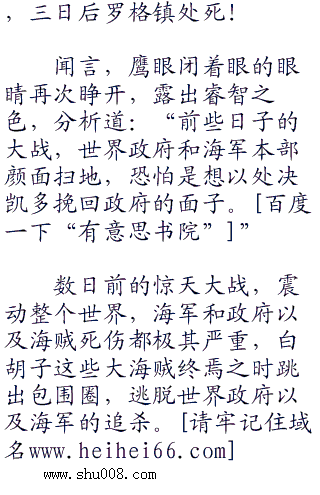 ，三日后罗格镇处死！
闻言，鹰眼闭着眼的眼
睛再次睁开，露出睿智之
色，分析道：“前些日子的
大战，世界政府和海军本部
颜面扫地，恐怕是想以处决
凯多挽回政府的面子。[百度
一下“有意思书院”]”
数日前的惊天大战，震
动整个世界，海军和政府以
及海贼死伤都极其严重，白
胡子这些大海贼终焉之时跳
出包围圈，逃脱世界政府以
及海军的追杀。[请牢记住域
名www.heihei66.com]
www.shu008.com